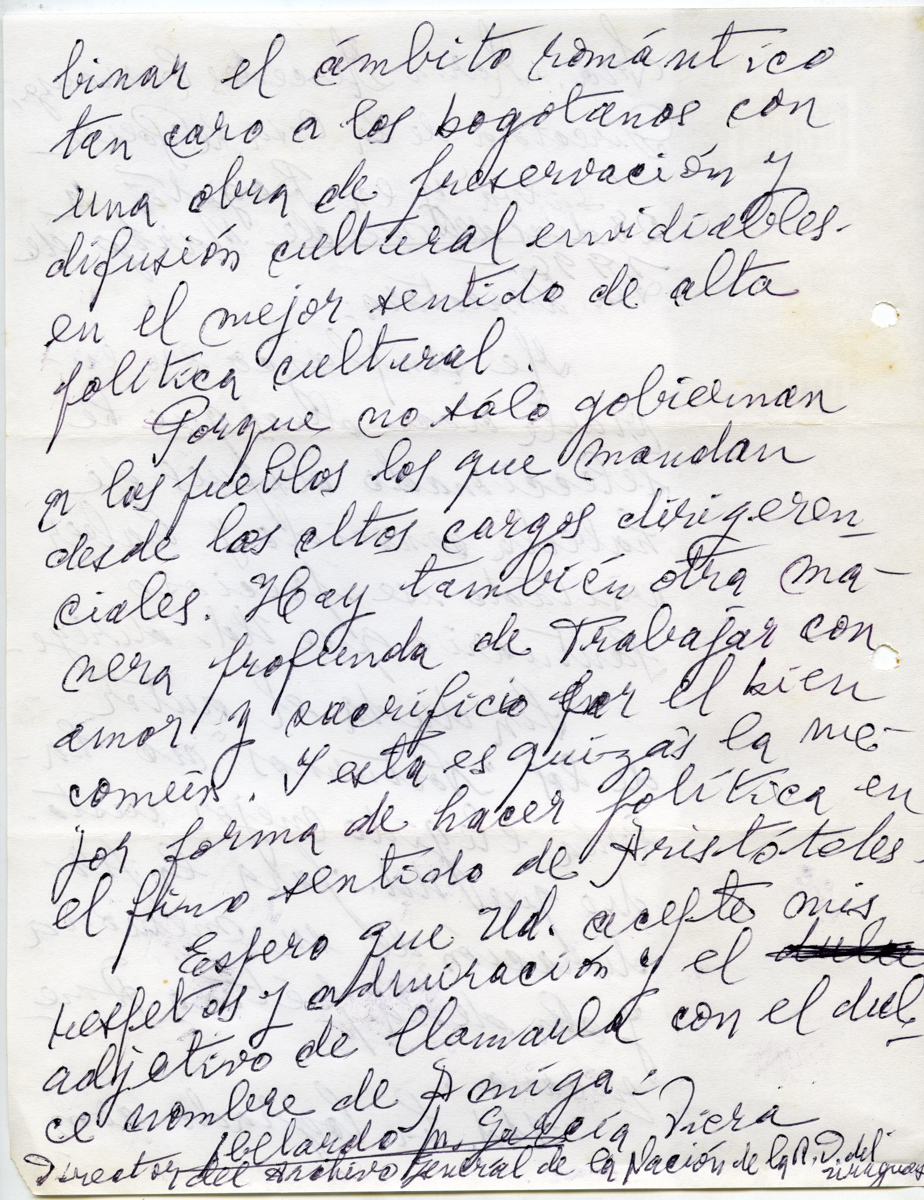 binar el ámbito romántico
tan caro a los bogotanos con
una obra de preservación y
difusión cultural envidiables.
en el mejor sentido de alta
política cultural.
Porque no sólo gobiernan
a los pueblos los que mandan
desde los altos cargos dirigeren-
ciales. Hay también otra ma-
nera profunda de Trabajar con
amor y sacrificio por el bien
común. Y esta es quizás la me-
jor forma de hacer política en
el fino sentido de Aristóteles.
Espero que Ud. acepte mis
respetos y admiración y el
adjetivo de llamarla con el dul-
ce nombre de Amiga:
Abelardo M. García Viera
Director del Archivo General de la Nación de la R. O. del Uruguay